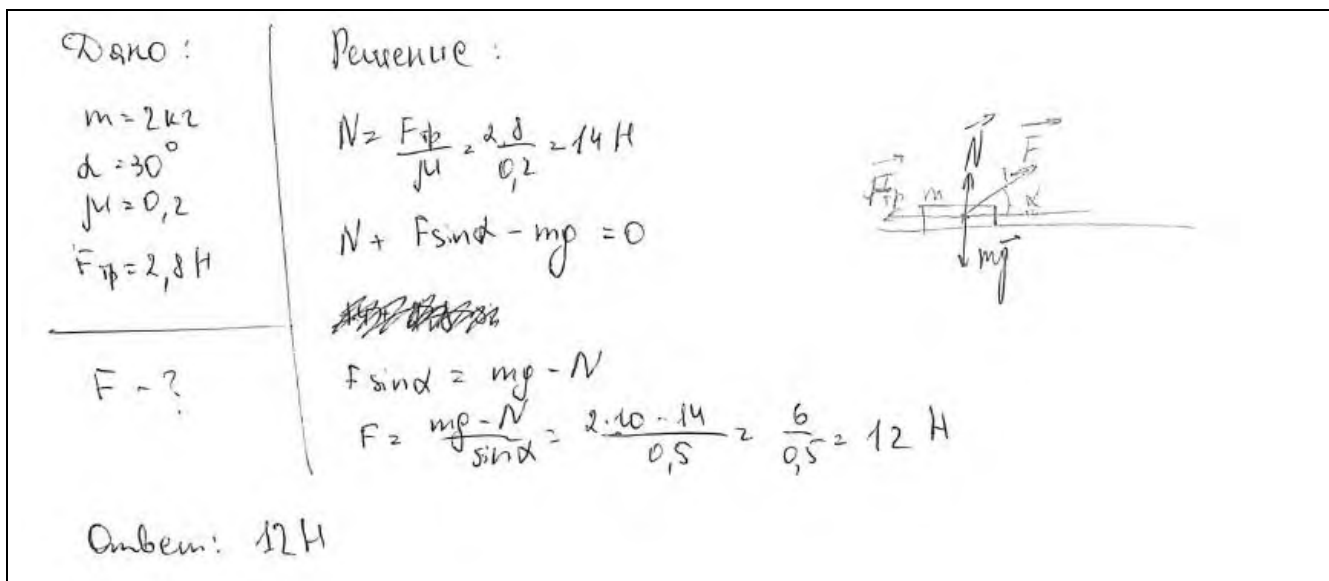 Дано:
m = 2 кг
α = 30°
μ = 0,2
Fтр = 2,8 Н
F - ?
Решение:
N = Fтр/μ = 2,8/0,2 = 14 Н
N + Fsinα - mg = 0
Fsinα = mg - N
F = (mg - N)/sinα = (2·10 - 14)/0,5 = 6/0,5 = 12 Н
N F
Fтр m α
mg
Ответ: 12 Н